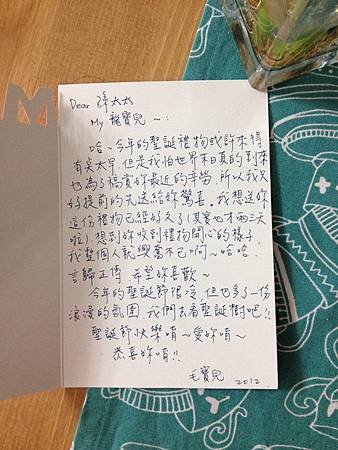 M
Dear 孫太太
My 龍寶兒~:
哈~今年的聖誕禮物或許來得
有央太早,但是我怕世界末日真的到來
也為了犒賞妳最近的辛勞,所以我只
好提前的先送給妳驚喜,我想送妳
這份禮物已經好久了(其實也才兩三天
啦),想到妳收到禮物開心的樣子,
我整個人就興奮不已啊~哈哈.
言歸正傳 希望妳喜歡~
今年的聖誕節很冷 但也多了一份
浪漫的氛圍,我們去看聖誕樹吧!!
聖誕節快樂唷~愛妳唷~
恭喜妳唷!!
毛寶兒
2012.